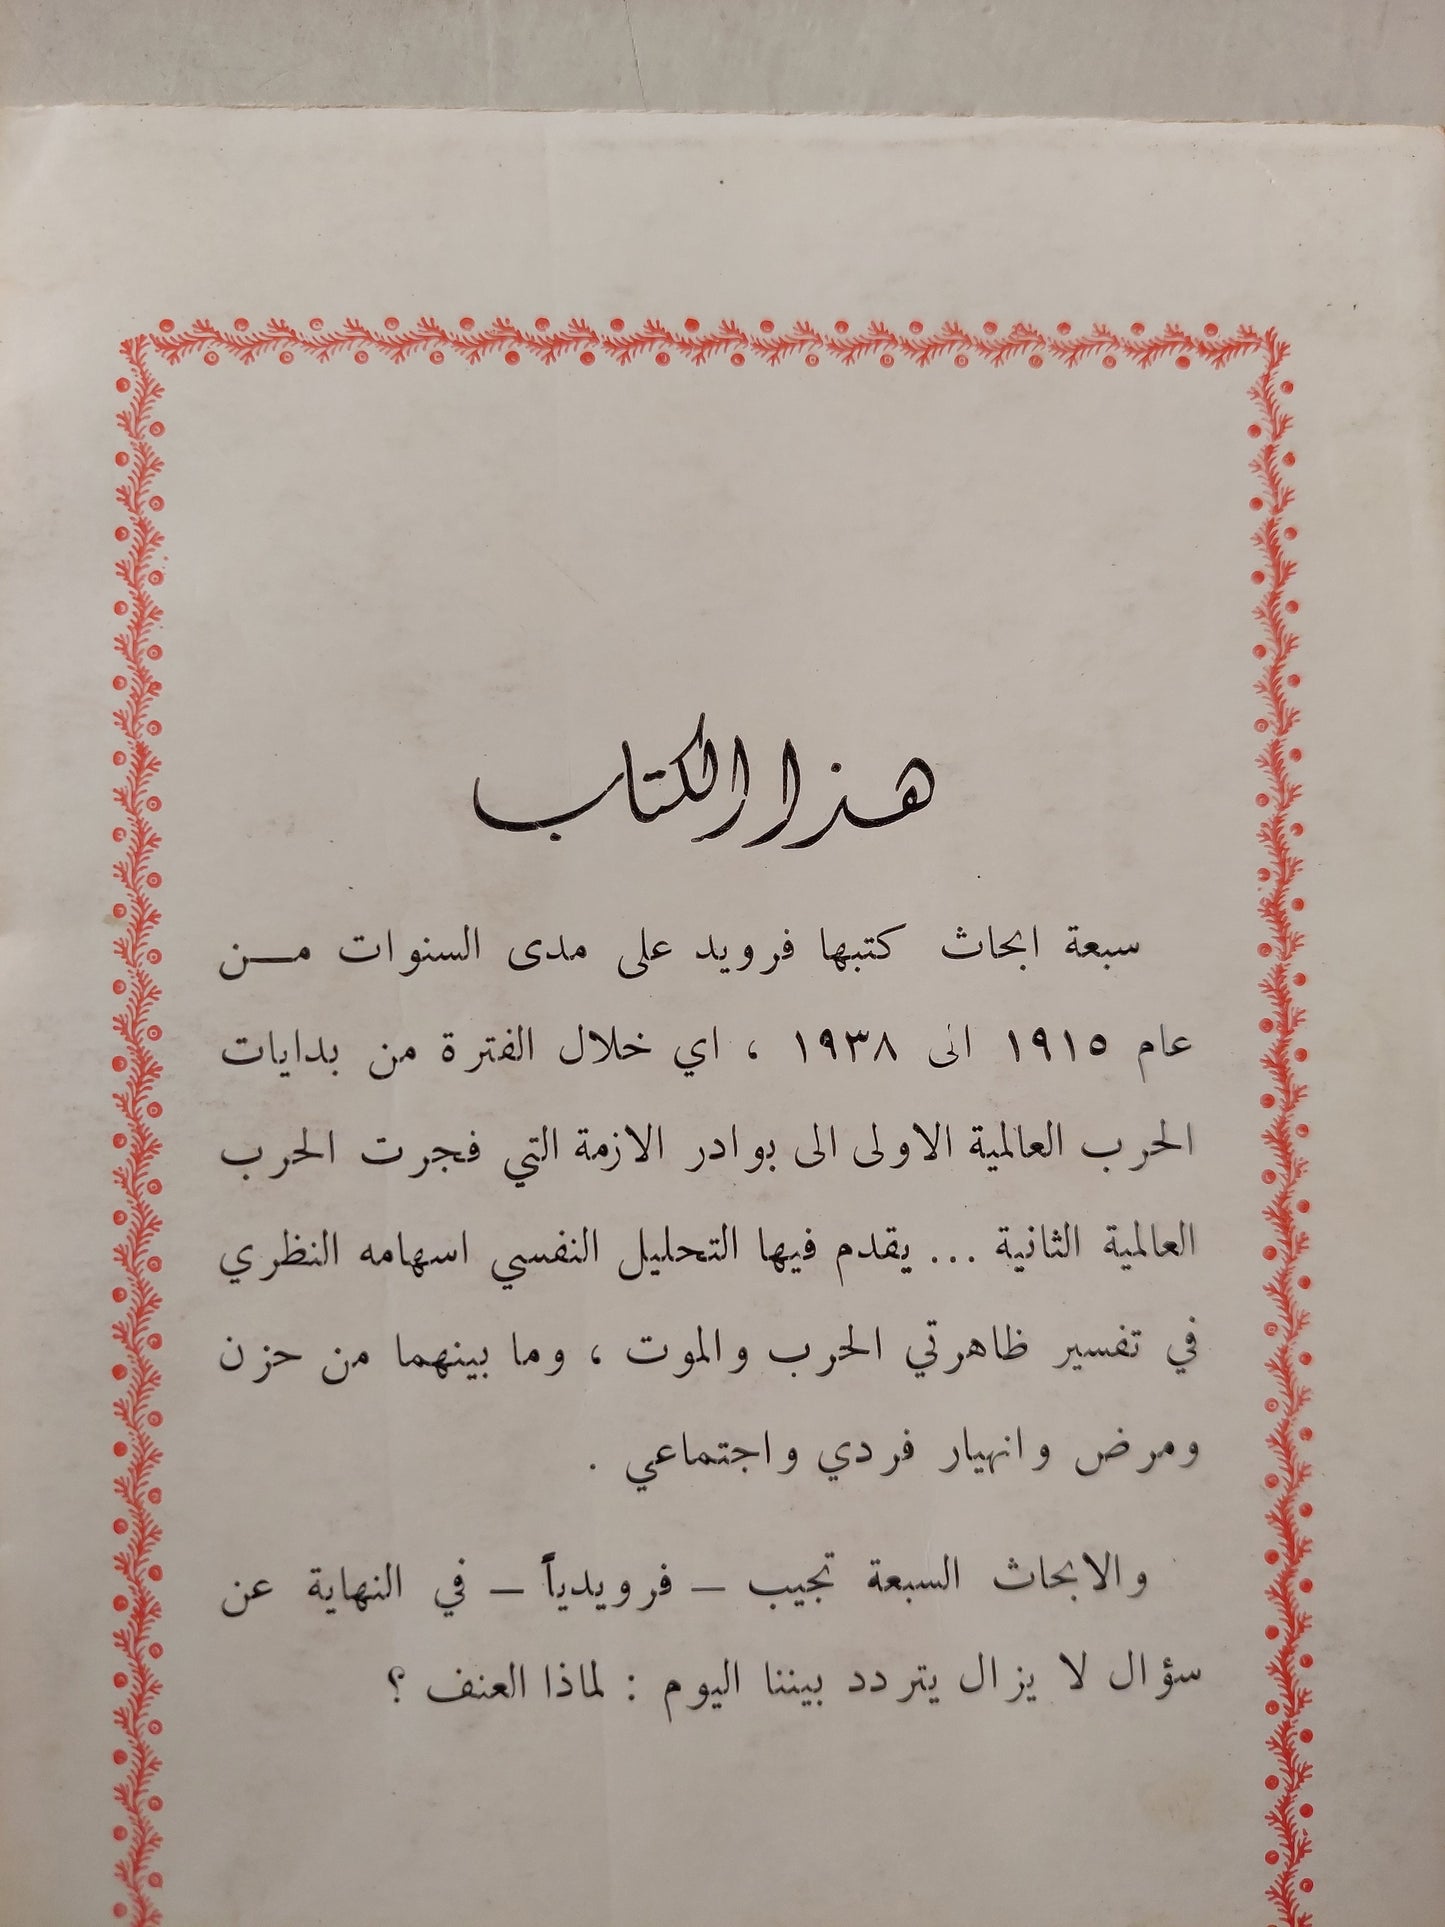 هذا الكتاب
سبعة ابحاث كتبها فرويد على مدى السنوات مـــن
عام ١٩١٥ الى ١٩٣٨ ، اي خلال الفترة من بدايات
الحرب العالمية الاولى الى بوادر الازمة التي فجرت الحرب
العالمية الثانية ... يقدم فيها التحليل النفسي اسهامه النظري
في تفسير ظاهرتي الحرب والموت ، وما بينهما من حزن
ومرض وانهيار فردي واجتماعي .
والابحاث السبعة تجيب – فرويدياً – في النهاية عن
سؤال لا يزال يتردد بيننا اليوم : لماذا العنف ؟